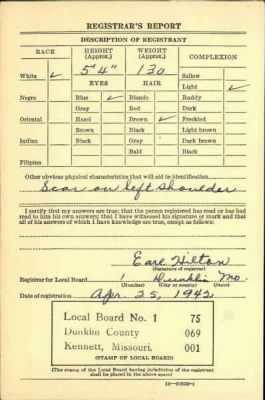 REGISTRAR'S REPORT
DESCRIPTION OF REGISTRANT
RACE HEIGHT (Approx.) WEIGHT (Approx.) COMPLEXION
White ✓ 5'4" 130 Sallow
EYES HAIR Light ✓
Negro Blue ✓ Blonde Ruddy
Gray Red Dark
Oriental Hazel Brown ✓ Freckled
Brown Black Light brown
Indian Black Gray Dark brown
Bald Black
Filipino
Other obvious physical characteristics that will aid in identification
Scar on left shoulder
I certify that my answers are true; that the person registered has read or has had
read to him his own answers; that I have witnessed his signature or mark and that
all of his answers of which I have knowledge are true, except as follows:
Earl Hilton
(Signature of registrar)
Registrar for Local Board 1 Dunklin Mo.
(Number) (City or county) (State)
Date of registration Apr. 25, 1942
Local Board No. 1 75
Dunklin County 069
Kennett, Missouri. 001
(STAMP OF LOCAL BOARD)
(The stamp of the Local Board having jurisdiction of the registrant
shall be placed in the above space)